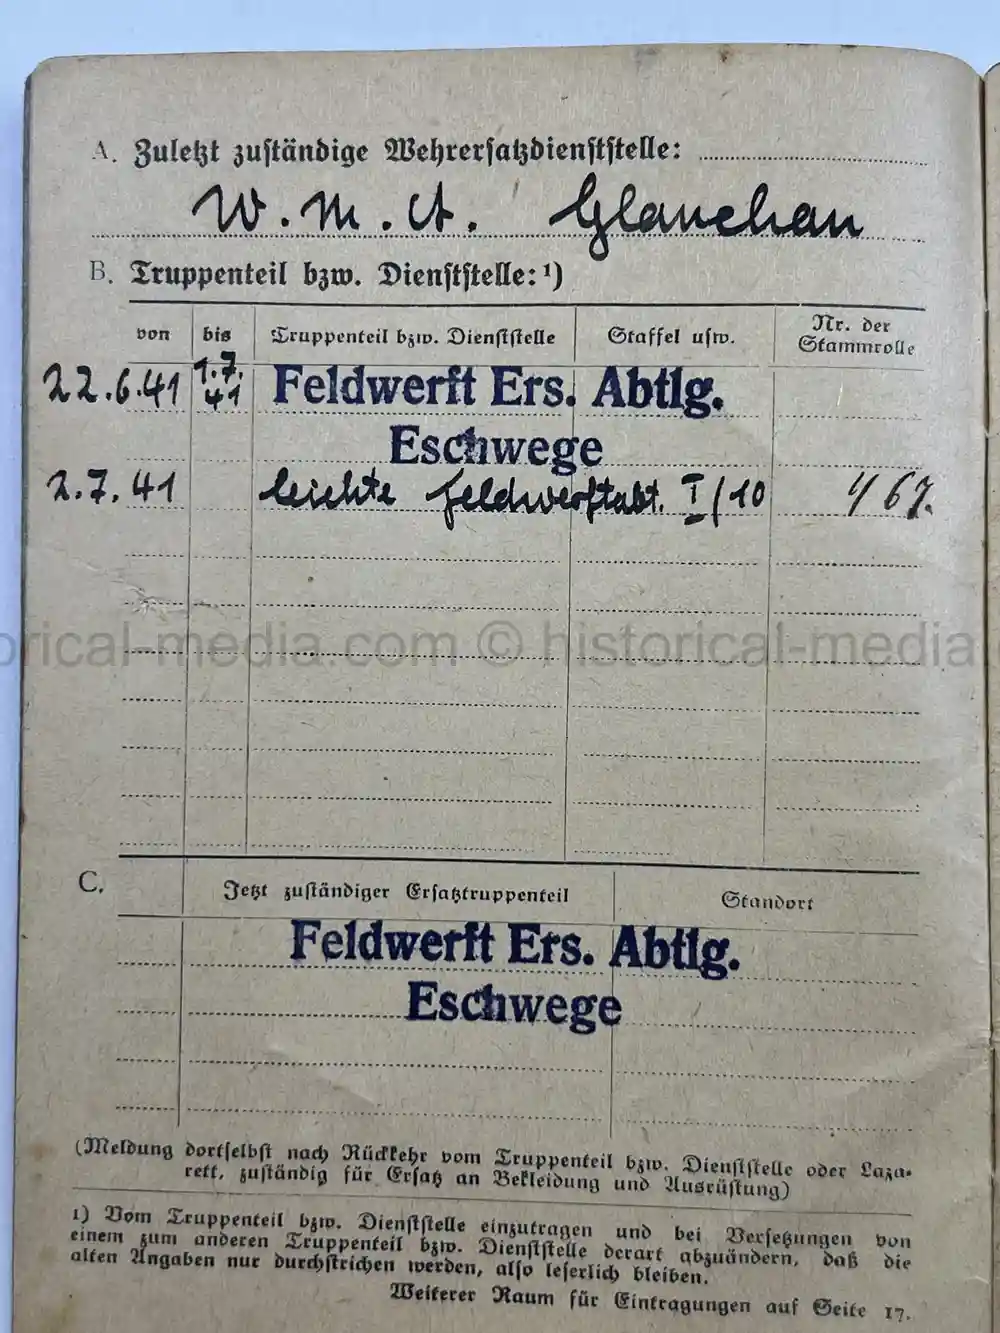 A. Zuletzt zuständige Wehrersatzdienststelle:
W. M. A. Glauchau
B. Truppenteil bzw. Dienststelle: ¹)
von bis Truppenteil bzw. Dienststelle Staffel usw. Nr. der Stammrolle
22.6.41 1.7.41 Feldwerft Ers. Abtlg.
Eschwege
2.7.41 leichte Feldwerftabt. I/10 467.
orical-media.com © historical-media
C. Jetzt zuständiger Ersatztruppenteil Standort
Feldwerft Ers. Abtlg.
Eschwege
(Meldung dortselbst nach Rückkehr vom Truppenteil bzw. Dienststelle oder Laza-
rett, zuständig für Ersatz an Bekleidung und Ausrüstung)
1) Vom Truppenteil bzw. Dienststelle einzutragen und bei Versetzungen von
einem zum anderen Truppenteil bzw. Dienststelle derart abzuändern, daß die
alten Angaben nur durchstrichen werden, also leserlich bleiben.
Weiterer Raum für Eintragungen auf Seite 17.